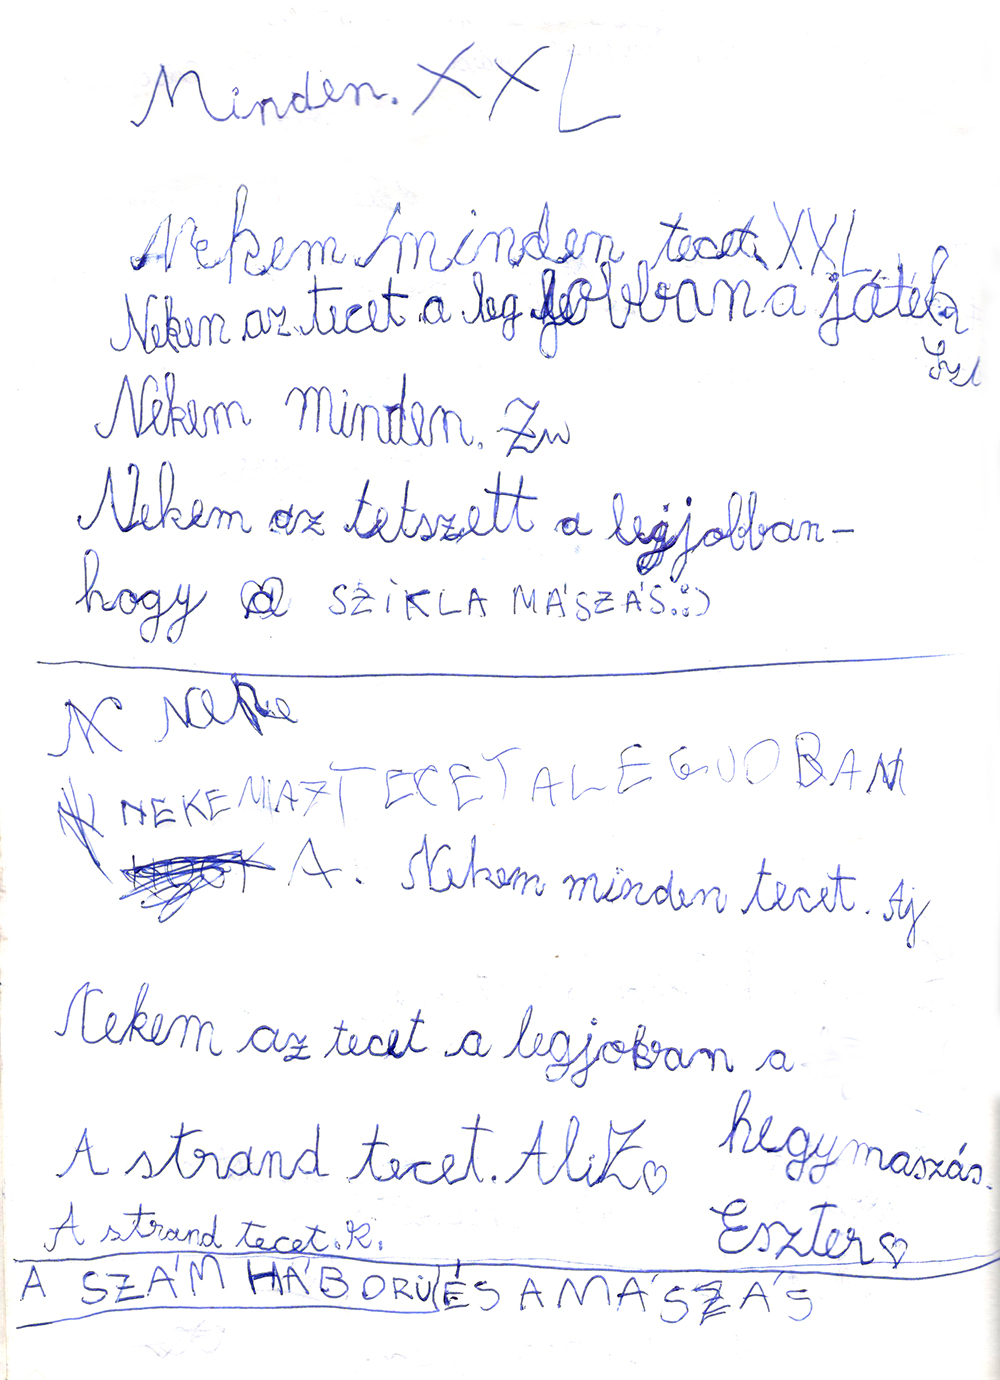 Minden. XXL
Nekem minden tecet XXL
Neken az tecet a leg jobban a játék
Nekem minden. Zw
Nekem az tetszett a legjobban-
hogy a SZIKLA MÁSZÁS.:)
N Neke
NEKEM AZ TECET A LEGJOBAN
A. Nekem minden tecet. Aj
Nekem az tecet a legjobban a
hegymaszás.
Eszter♡
A strand tecet. AliZ♡
A strand tecet. K.
A SZÁM HÁBORU ÉS A MÁSZÁS